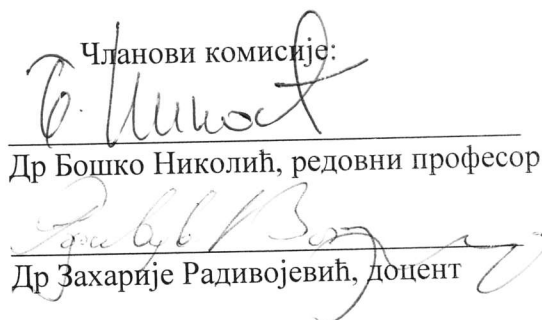 Чланови комисије:
Др Бошко Николић, редовни професор
Др Захарије Радивојевић, доцент